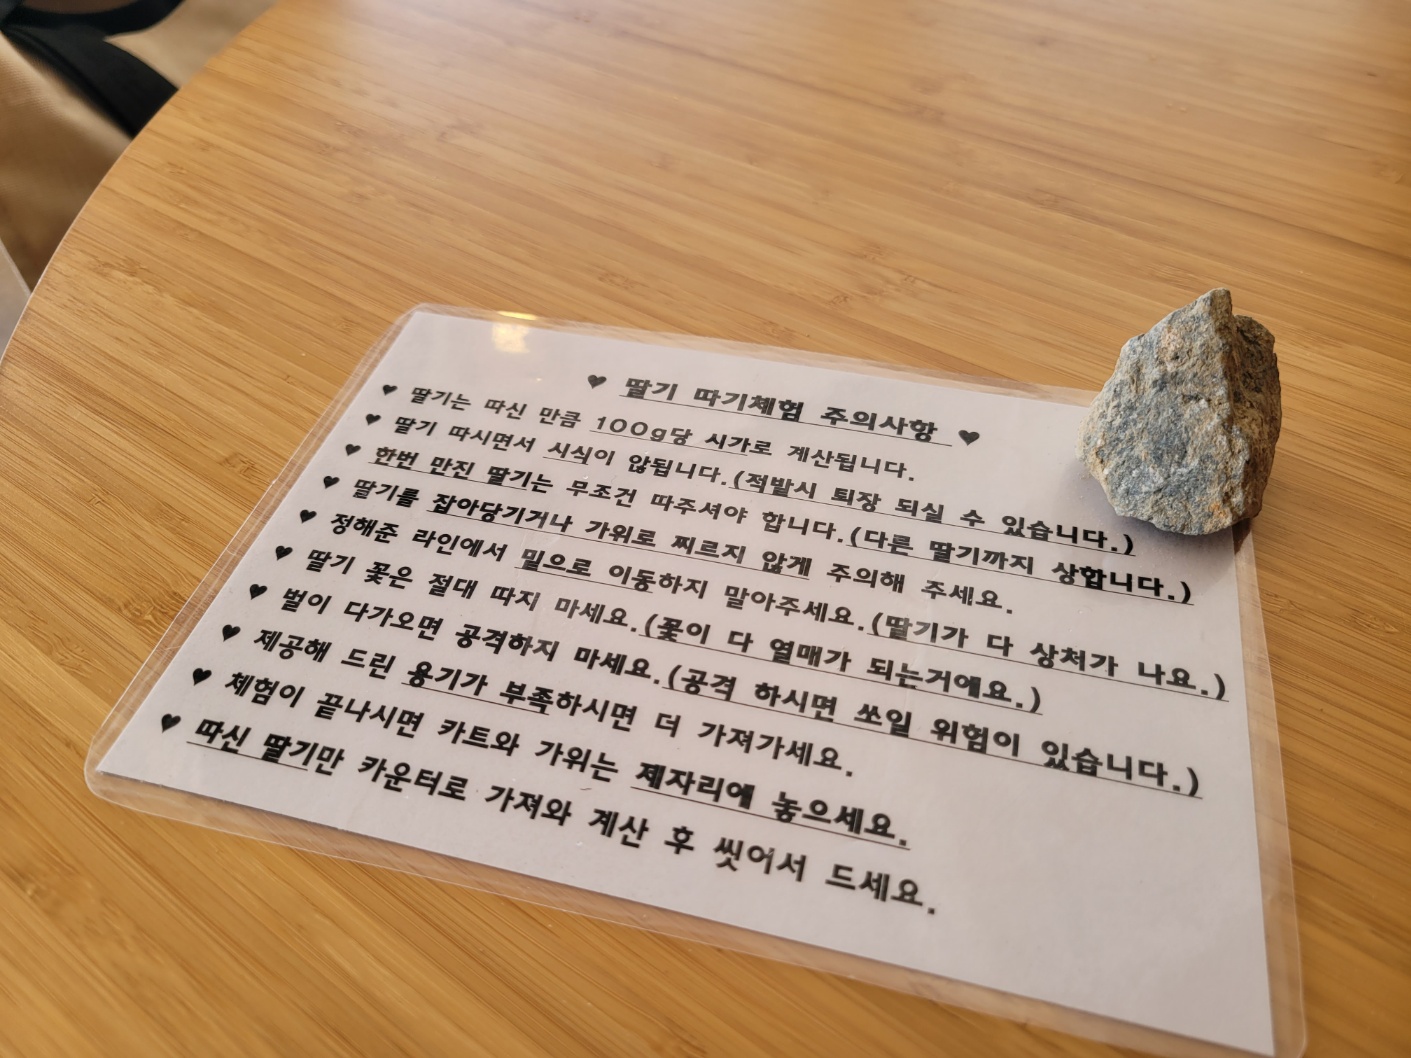 ♥ 딸기 따기체험 주의사항 ♥
♥ 딸기는 따신 만큼 100g당 시가로 계산됩니다.
♥ 딸기 따시면서 시식이 않됩니다.(적발시 퇴장 되실 수 있습니다.)
♥ 한번 만진 딸기는 무조건 따주셔야 합니다.(다른 딸기까지 상합니다.)
♥ 딸기를 잡아당기거나 가위로 찌르지 않게 주의해 주세요.
♥ 정해준 라인에서 밑으로 이동하지 말아주세요.(딸기가 다 상처가 나요.)
♥ 딸기 꽃은 절대 따지 마세요.(꽃이 다 열매가 되는거예요.)
♥ 벌이 다가오면 공격하지 마세요.(공격 하시면 쏘일 위험이 있습니다.)
♥ 제공해 드린 용기가 부족하시면 더 가져가세요.
♥ 체험이 끝나시면 카트와 가위는 제자리에 놓으세요.
♥ 따신 딸기만 카운터로 가져와 계산 후 씻어서 드세요.